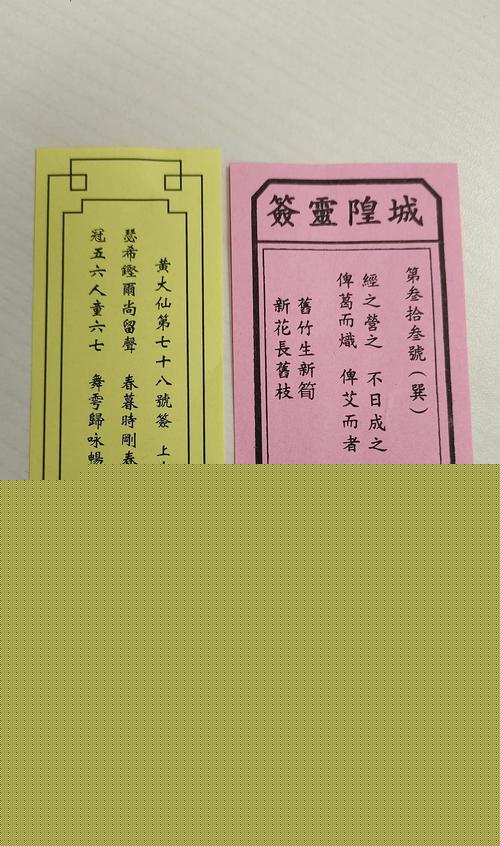 城隍靈簽
第叁拾叁號(巽)
經之營之 不日成之
俾葛而熾 俾艾而者
舊竹生新筍
新花長舊枝
黃大仙第七十八號簽 上
瑟希鏗爾尚留聲 春暮時剛春
冠五六人童六七 舞雩歸咏暢